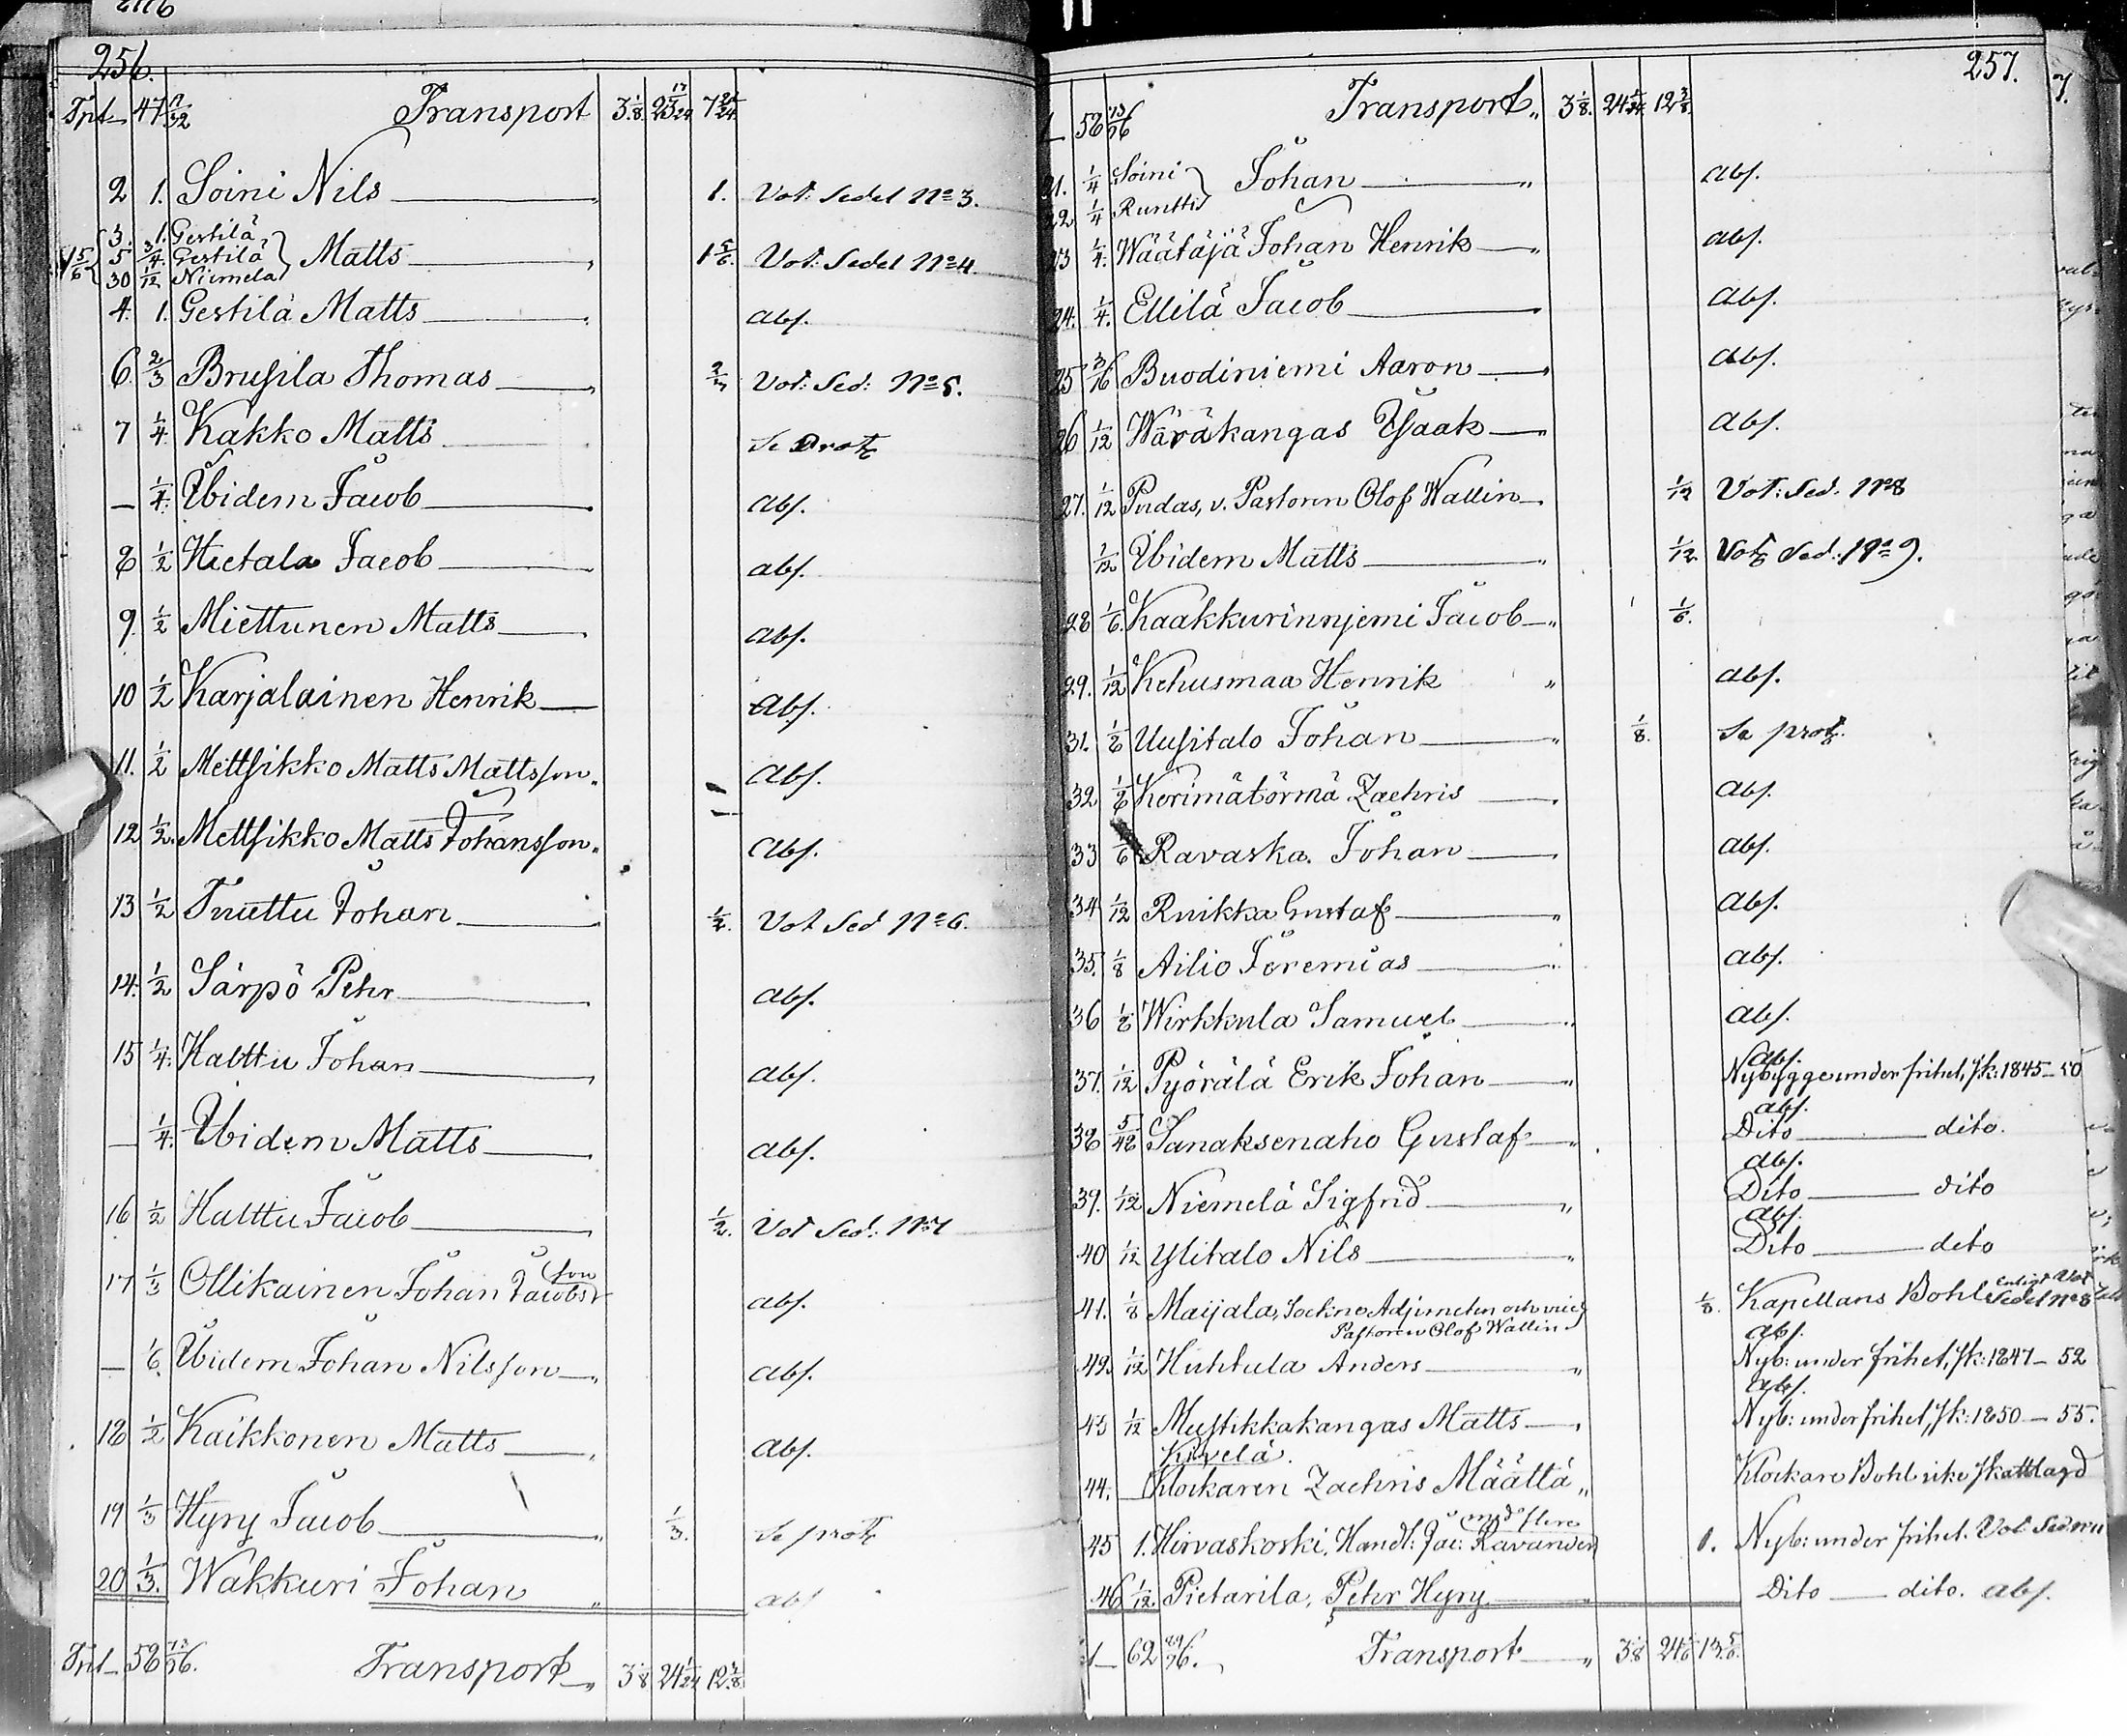 256.
Tpt 47 17/32 Transport 3 1/8. 23 17/24 7 21/24
2 1. Soini Nils 1. Vot: Sedel No 3.
3. 1. Gestilä
1 5/6 5 3/4. Gestilä Matts 1 5/6. Vot: Sedel No 4.
30 1/12 Niemelä
4. 1. Gestilä Matts abs.
6. 2/3 Brusila Thomas 2/3 Vot: Sed: No 5.
7 1/4. Kakko Matts Se Prot
— 1/4. Ibidem Jacob abs.
8 1/2 Hietala Jacob abs.
9. 1/2 Miettunen Matts abs.
10 1/2 Karjalainen Henrik Abs.
11. 1/2 Mettsikko Matts Mattsson Abs.
12 1/2. Mettsikko Matts Johansson Abs.
13 1/2 Tuuttu Johan 1/2. Vot Sed No 6.
14. 1/2 Särpö Pehr abs.
15 1/4. Kalttu Johan abs.
— 1/4. Ibidem Matts abs.
16 1/2 Kalttu Jacob 1/2. Vot Sed: No 7
17 1/3 Ollikainen Johan Jacobsson abs.
— 1/6. Ibidem Johan Nilsson abs.
18 1/2 Kaikkonen Matts abs.
19 1/3 Hyry Jacob 1/3. Se prot
20 1/3. Wakkuri Johan abs
Tpt 56 13/96. Transport 3 1/8 24 1/24 12 3/8.
257.
56 13/96 Transport 3 1/8. 24 1/24. 12 3/8.
21. 1/4 Soini Johan abs.
22 1/4 Runtti
23 1/4. Wäätäjä Johan Henrik abs.
24. 1/4. Ellilä Jacob abs.
25 3/16 Buodiniemi Aaron abs.
26 1/12 Wäräkangas Isaak abs.
27. 1/12 Pudas, v. Pastoren Olof Wallin 1/12 Vot: Sed. No 8
1/12 Ibidem Matts 1/12. Vot Sed: No 9.
28 1/6. Kaakkurinnjemi Jacob 1/6.
29. 1/12 Kehusmaa Henrik abs.
31. 1/8 Uusitalo Johan 1/8. Se prot.
32 1/8 Korimätörmä Zachris abs.
33 1/6 Ravaska Johan abs.
34 1/12 Ruikka Gustaf abs.
35. 1/8 Ailio Jeremias abs.
36 1/8 Wirkkula Samuel abs.
abs.
37. 1/12 Pyörälä Erik Johan Nybygge under frihet, sk: 1845–50
abs.
38 5/48 Sanaksenaho Gustaf Dito dito.
abs.
39. 1/12 Niemelä Sigfrid Dito dito
abs.
40 1/12 Ylitalo Nils Dito dito
41. 1/8 Maijala, Sockne Adjuncten och vice Pastoren Olof Wallin 1/8. Kapellans Bohl Enligt Vot Sedel No 8
abs.
42. 1/12 Huhtula Anders Nyb: under frihet, sk: 1847–52
abs.
43 1/12 Mustikkakangas Matts Nyb: under frihet, sk: 1850–55.
Kivelä.
44. — Klockaren Zachris Määttä Klockare Bohl icke skattlagd
med flere
45 1. Hirvaskoski, Handl: Jac: Ravander 1. Nyb: under frihet. Vot Sed
46 1/12. Pietarila, Pehr Hyry Dito dito. abs.
62 29/96. Transport 3 1/8 24 1/6 13 5/6.